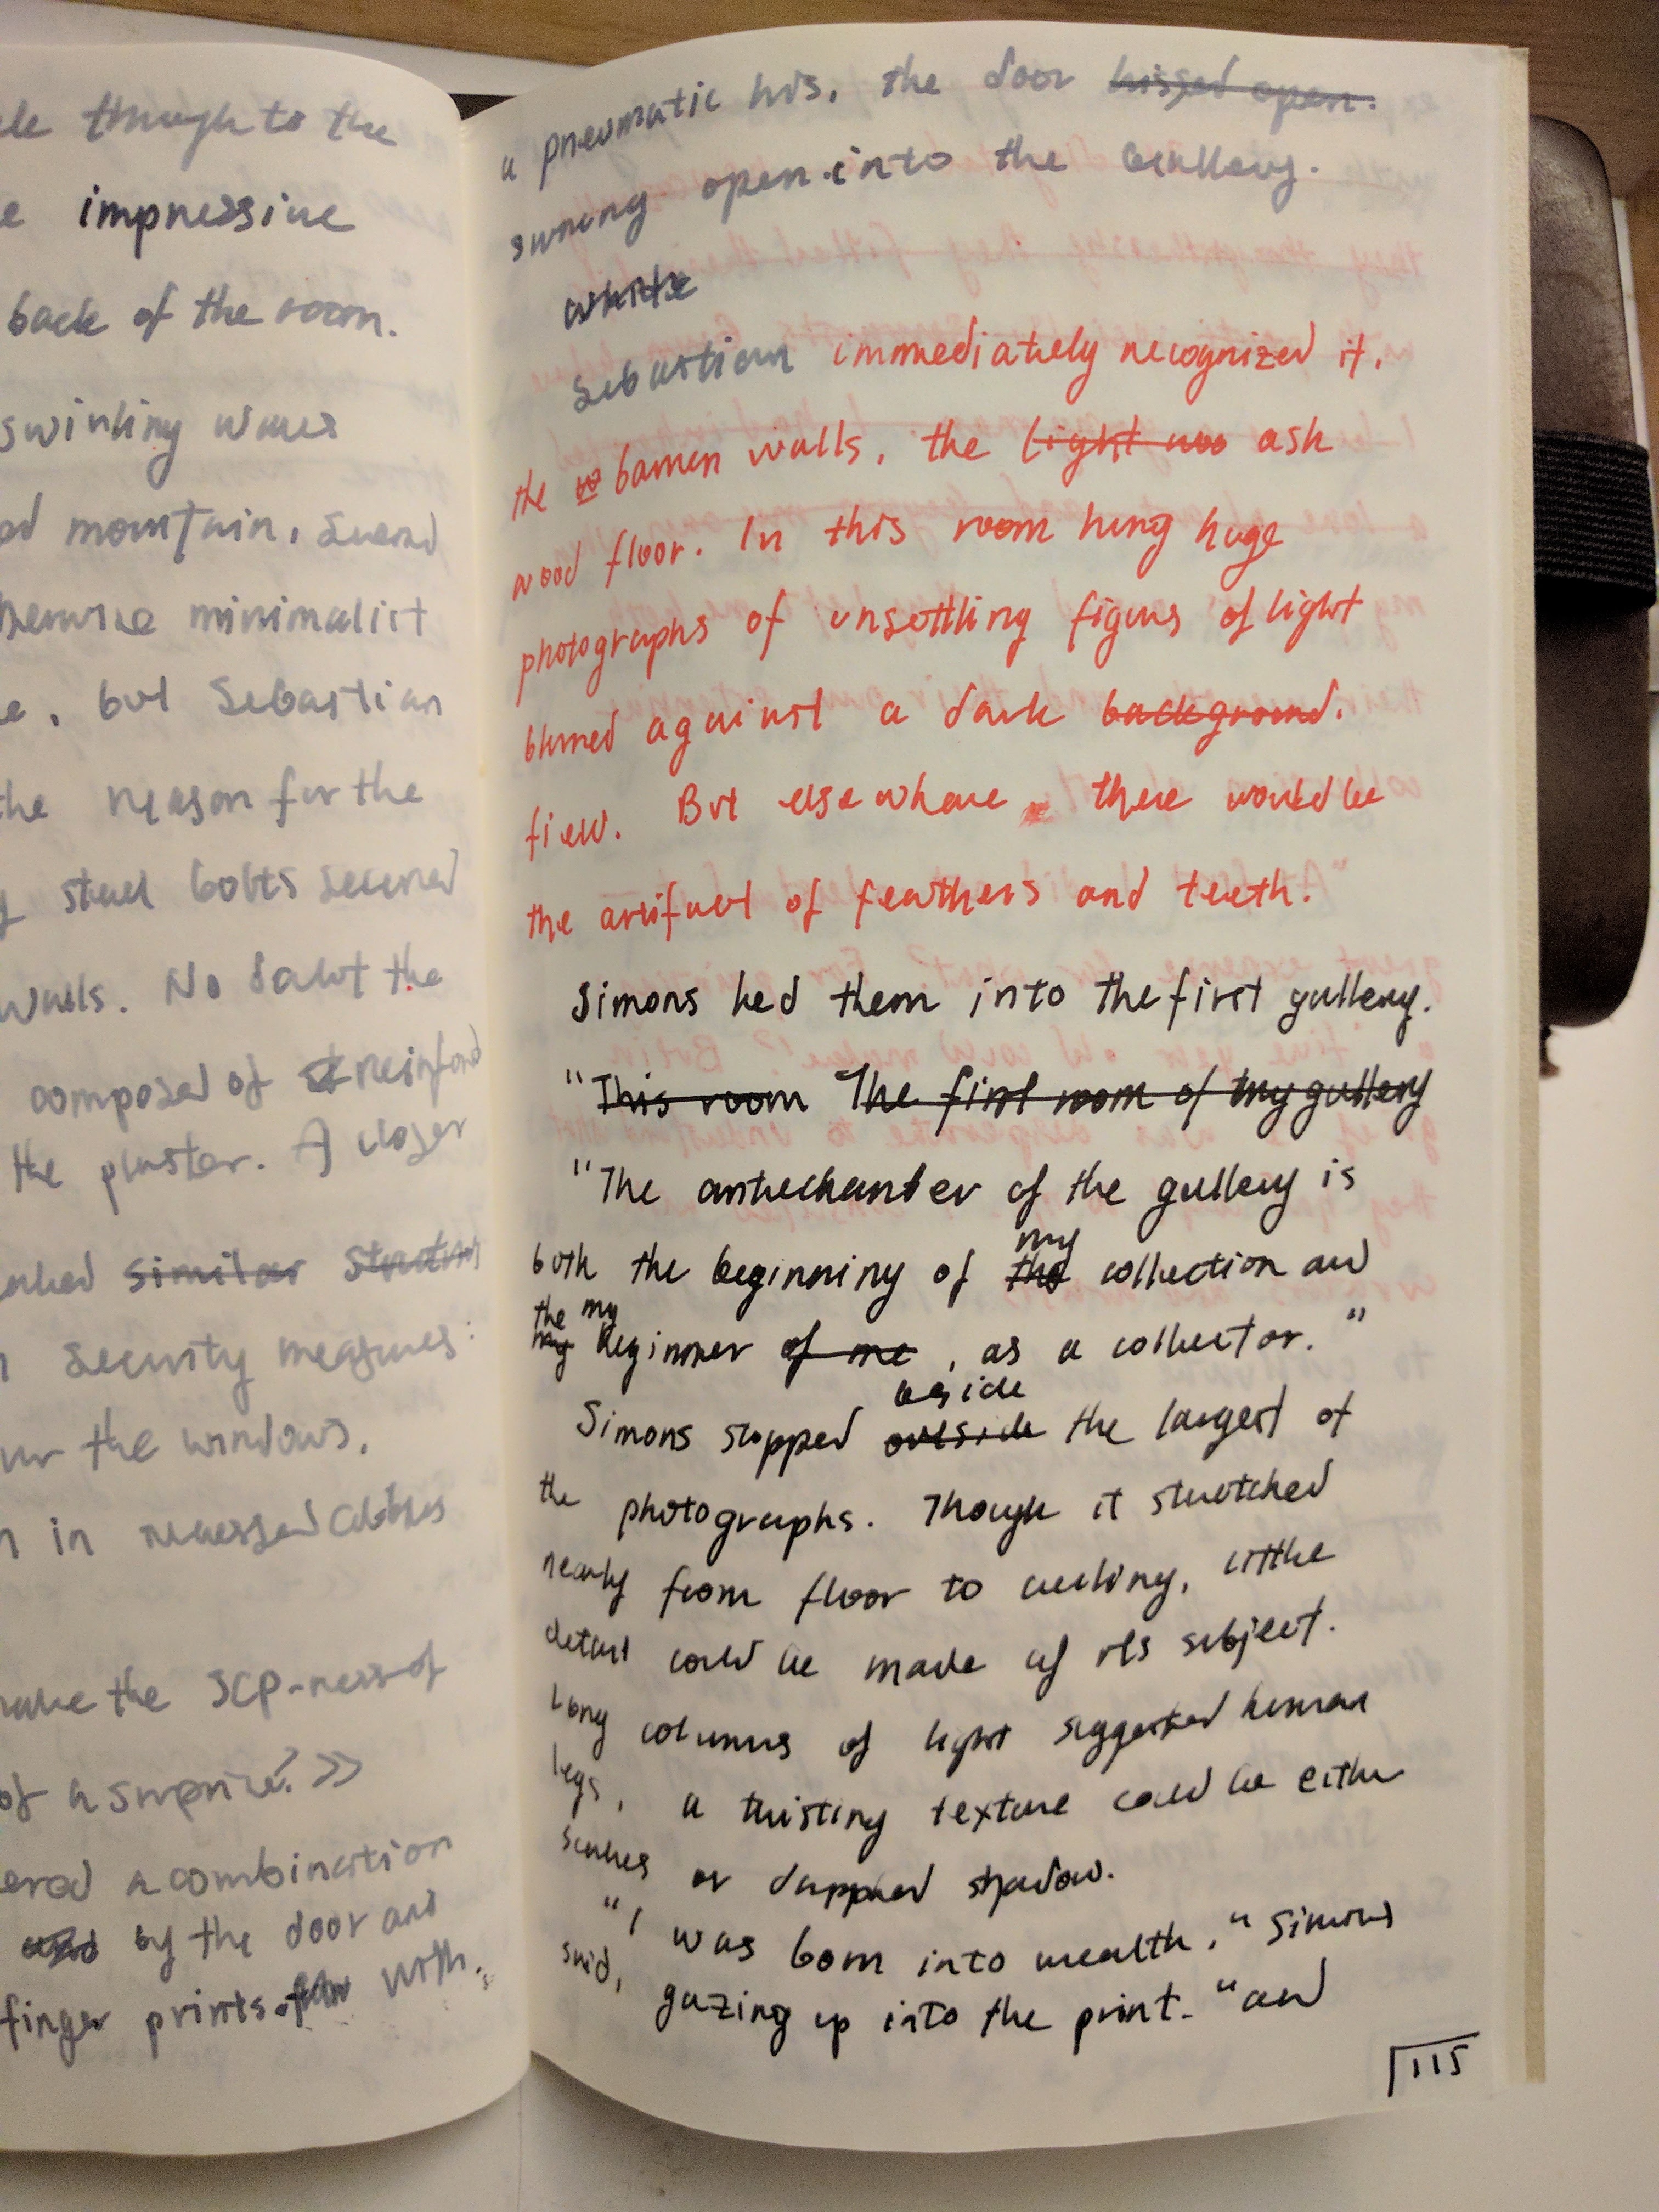 le though to the
e impressive
back of the room.
swirling waves
od mountain. Suend
herwise minimalist
e, but Sebastian
the reason for the
steel bolts secured
walls. No doubt the
composed of reinford
the plaster. A closer
similar
Security measures:
the windows.
n in recessed cubbies
make the SCP-ness of
of a surprize? >>
ered a combination
by the door and
finger prints. with.
a pneumatic his, the door hissed open.
swung open into the Gallery.
white
Sebastian immediately recognized it.
the barren walls, the light woo ash
wood floor. In this room hung huge
photographs of unsettling figures of light
blurred against a dark background.
field. But elsewhere there would be
the artifact of feathers and teeth.
Simons led them into the first gallery.
"This room The first room of my gallery
"The antechamber of the gallery is
my
both the beginning of the collection and
the my
my beginner of me, as a collector."
beside
Simons stopped outside the largest of
the photographs. Though it stretched
nearly from floor to ceiling, little
detail could be made of its subject.
Long columns of light suggested human
legs, a twisting texture could be either
scales or dappled shadow.
"I was born into wealth," Simons
said, gazing up into the print. "and
115